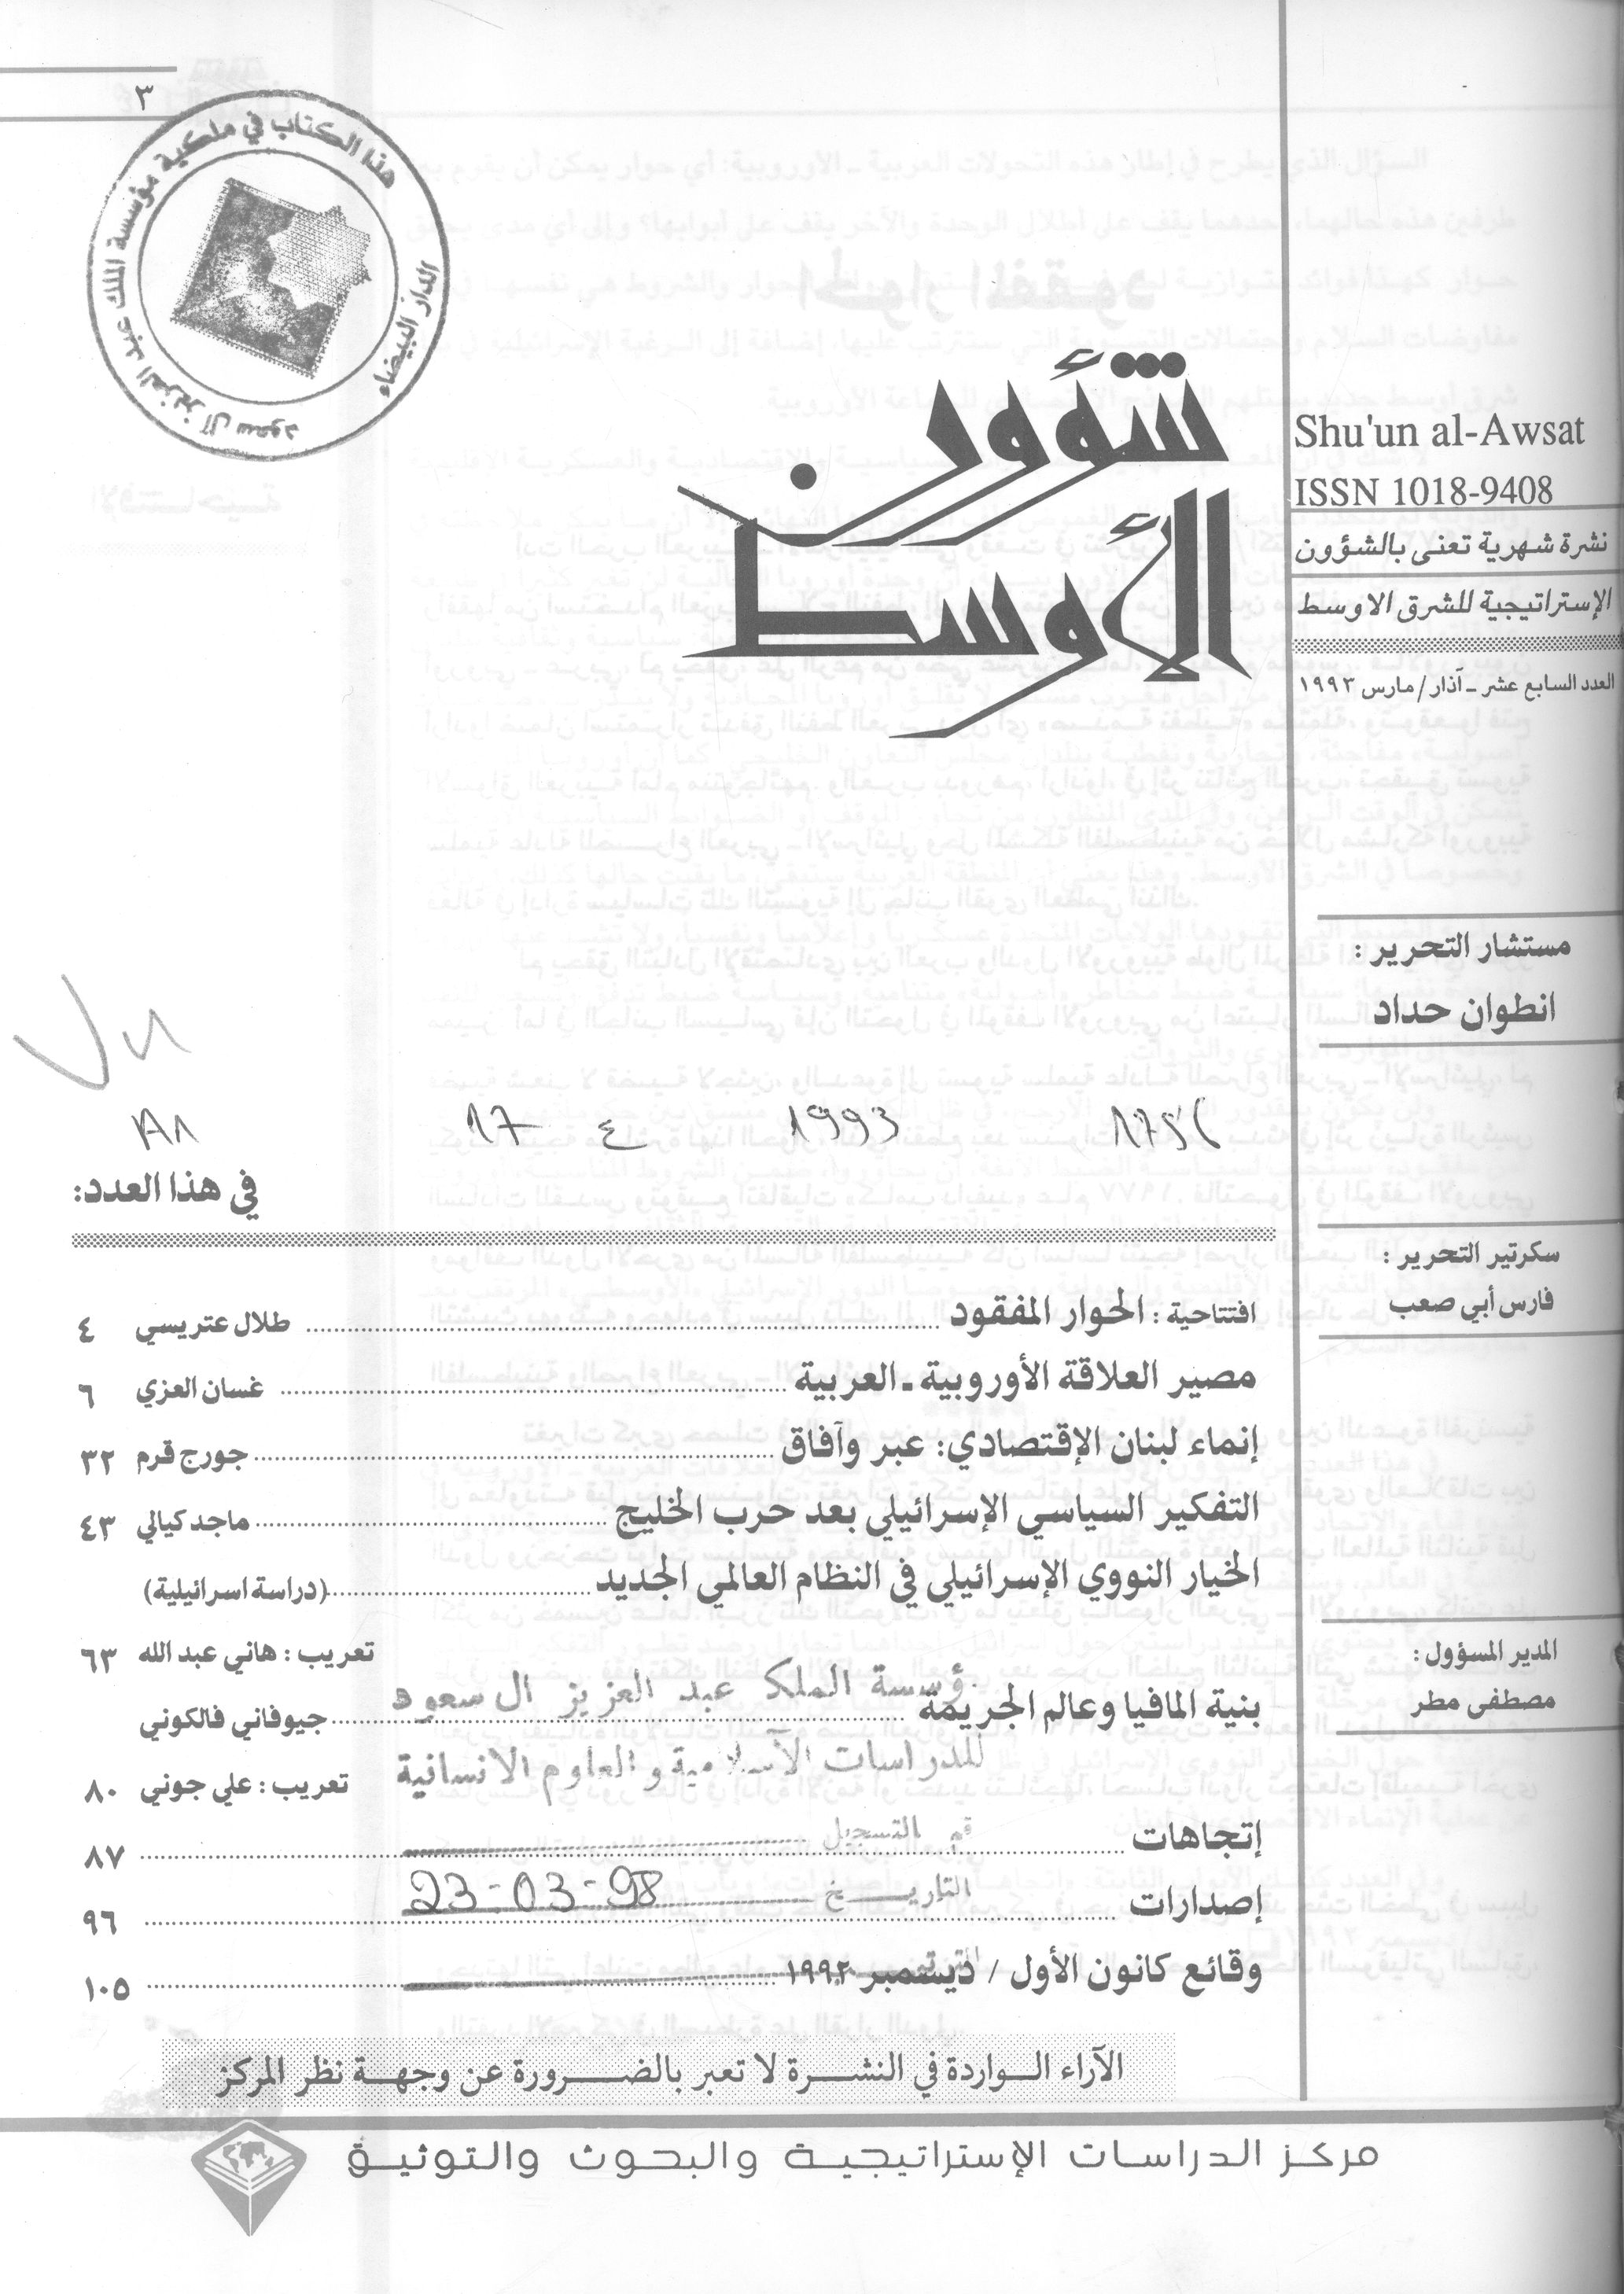 ٣
هذا الكتاب في ملكية مؤسسة الملك عبد العزيز آل سعود
الدار البيضاء
شؤون
الأوسط
Shu'un al-Awsat
ISSN 1018-9408
نشرة شهرية تعنى بالشؤون
الإستراتيجية للشرق الاوسط
العدد السابع عشر ـ آذار/مارس ١٩٩٣
مستشار التحرير :
انطوان حداد
سكرتير التحرير :
فارس أبي صعب
المدير المسؤول :
مصطفى مطر
17 ٤ 1993
في هذا العدد:
افتتاحية : الحوار المفقود ........ طلال عتريسي ٤
مصير العلاقة الأوروبية ـ العربية ........ غسان العزي ٦
إنماء لبنان الإقتصادي: عبر وآفاق ........ جورج قرم ٣٢
التفكير السياسي الإسرائيلي بعد حرب الخليج ........ ماجد كيالي ٤٣
الخيار النووي الإسرائيلي في النظام العالمي الجديد ........ (دراسة اسرائيلية)
تعريب : هاني عبد الله ٦٣
بنية المافيا وعالم الجريمة ........ جيوفاني فالكوني
تعريب : علي جوني ٨٠
إتجاهات ........ ٨٧
إصدارات ........ ٩٦
وقائع كانون الأول / ديسمبر ١٩٩٢ ........ ١٠٥
مؤسسة الملك عبد العزيز ال سعود
للدراسات الاسلامية و العلوم الانسانية
رقم التسجيل
التاريخ 23-03-98
الآراء الـواردة في النشـرة لا تعبر بالضـرورة عن وجهـة نظر المركز
مركز الدراسات الإستراتيجية والبحوث والتوثيق